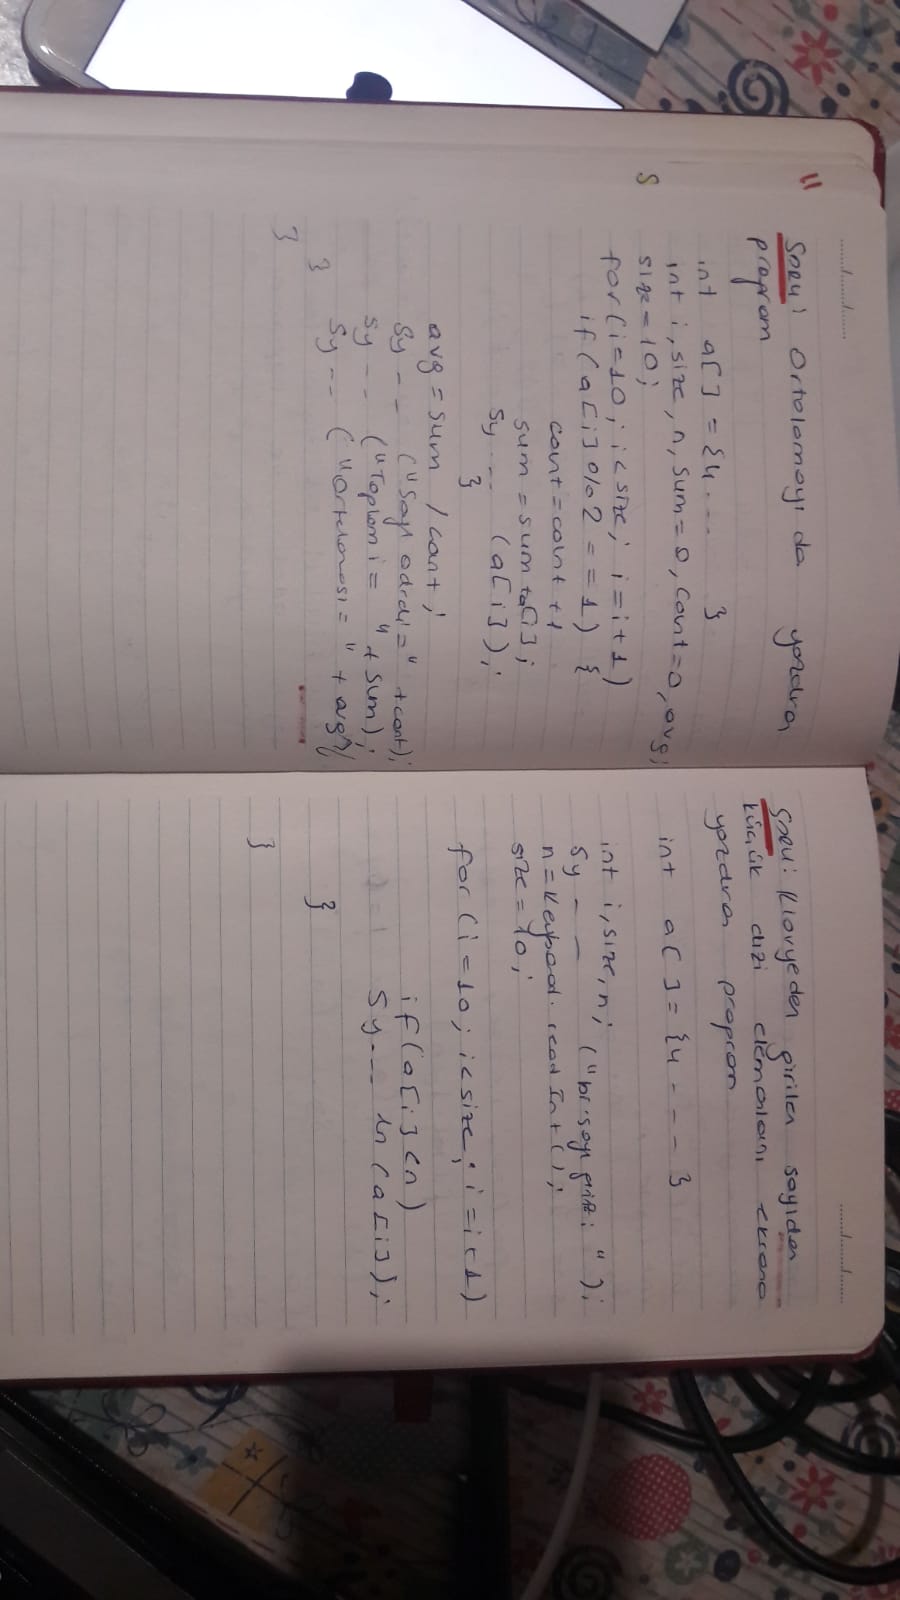 Soru: Ortalamayı da yazdıran
program
int a[] = {4 .... }
int i, size, n, sum=0, cont=0, avg;
size=10;
for(i=10; i<size; i=i+1)
if(a[i]%2==1) {
cont=cont+1
sum=sum+a[i];
Sy... (a[i]);
}
avg=sum/cont;
Sy-- ("Sayı adedi=" +cont);
Sy-- ("Toplami= "+sum);
Sy-- ("Ortalaması= " + avg);
}
}
Soru: Klavyeden girilen sayıdan
küçük dizi elemanlarını ekrana
yazdıran program
int a[]={4 - - - }
int i,size,n;
Sy - - ("bir sayı girin: ");
n=Keyboard.readInt();
size=10;
for(i=10; i<size; i=i+1)
if(a[i]<n)
Sy... ln(a[i]);
}
}